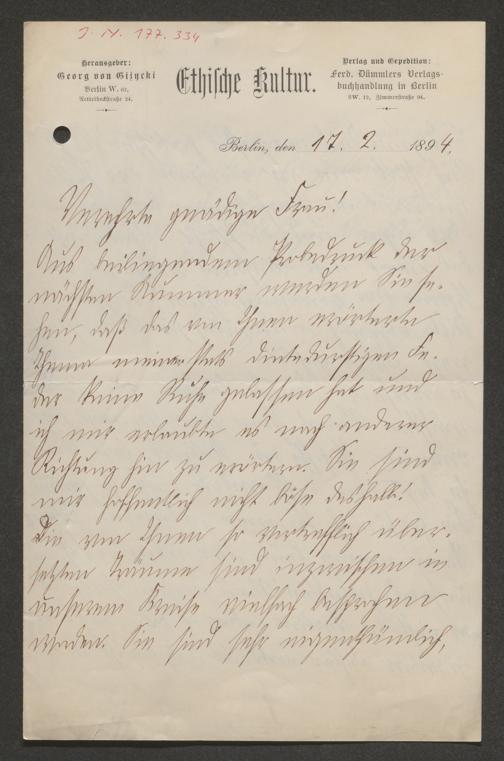 J. N. 177.334
Herausgeber:
Georg von Gizycki
Berlin W. 62,
Nettelbeckstraße 24.
Ethische Kultur.
Verlag und Expedition:
Ferd. Dümmlers Verlags-
buchhandlung in Berlin
SW. 12, Zimmerstraße 94.
Berlin, den 17. 2. 1894.
Verehrte gnädige Frau!
Aus beiliegendem Probedruck der
nächsten Nummer werden Sie se-
hen, daß das von Ihnen erörterte
Thema meiner stets dintedurstigen Fe-
der keine Ruhe gelassen hat und
ich mir erlaubte es nach anderer
Richtung hin zu erörtern. Sie sind
mir hoffentlich nicht böse deshalb!
Die von Ihnen so vortrefflich über-
setzten Träume sind inzwischen in
unserem Kreise vielfach besprochen
worden. Sie sind sehr eigenthümlich,